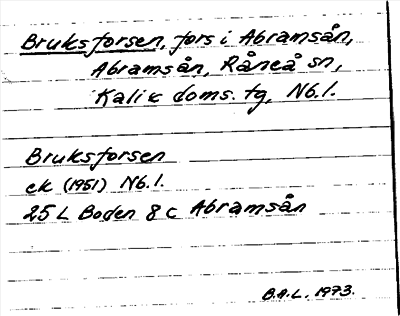 Bruksforsen, fors i Abramsån,
Abramsån, Råneå sn,
Kalix doms. tg, Nb.l.
Bruksforsen
ek (1951) Nb.l.
25 L Boden 8 c Abramsån
B.A.L. 1973.